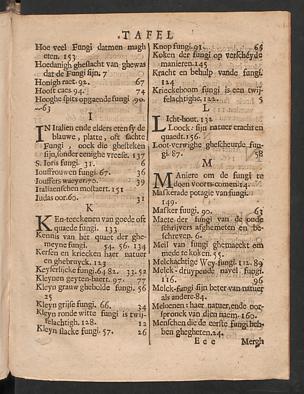 TAFEL
Hoe veel Fungi datmen magh
eten. 153
Hoedanigh gheslacht van ghewas
dat de Fungi sijn. 7
Honigh raet. 92. 67
Hooft caes. 94. 74
Hooghe spits opgaende fungi. 90.
—63
I
IN Italien ende elders eten sy de
blauwe, platte, oft slechte
Fungi, oock die ghesteken
sijn, sonder eenighe vreese. 137
S. Joris fungi. 31. 6
Iouffrouwen fungi. 67. 36
Iouffers wayer. 70. 39
Italiaenschen mostaert. 151
Iudas oor. 60. 31
K
KEn-teeckenen van goede oft
quaede fungi. 133
Kennis van het quaet der ghe-
meyne fungi. 54. 56. 134
Kersen en kriecken haer natuer
en ghebruyck. 123
Keyserlijcke fungi. 64 82. 33. 52
Kleynen geyten-baert. 97. 77
Kleyn grauw gheholde fungi. 56
25
Kleyn grijse fungi. 66. 34
Kleyn ronde witte fungi is twij-
felachtigh. 128. 12
Kleyn slacke fungi. 57. 26
Knop fungi. 91. 66
Koken der fungi op verscheyde
manieren. 145
Kracht en behulp vande fungi.
124
Krieckeboom fungi is een twij-
felachtighe. 122. 5
L
LIcht-hout. 132
Loock: sijn natuer cracht en
quaedt. 156.
Loot-verwighe ghescheurde fun-
gi. 87. 58
M
MAniere om de fungi te
doen voorts-comen. 14.
Maskerade potagie van fungi.
149.
Masker fungi. 90. 63
Maete der fungi van de oude
schrijvers afghemeten en be-
schreven. 6.
Meil van fungi ghemaeckt om
mede te koken. 55.
Melckachtighe Wey-fungi. 112. 89
Melck-druypende navel fungi.
116. 96
Melck-fungi sijn beter van natuer
als andere 84.
Meloenen: haer natuer, ende oor-
spronck van dien naem. 160.
Menschen die de eerste fungi heb-
ben ghegheten. 24.
Eee Mergh